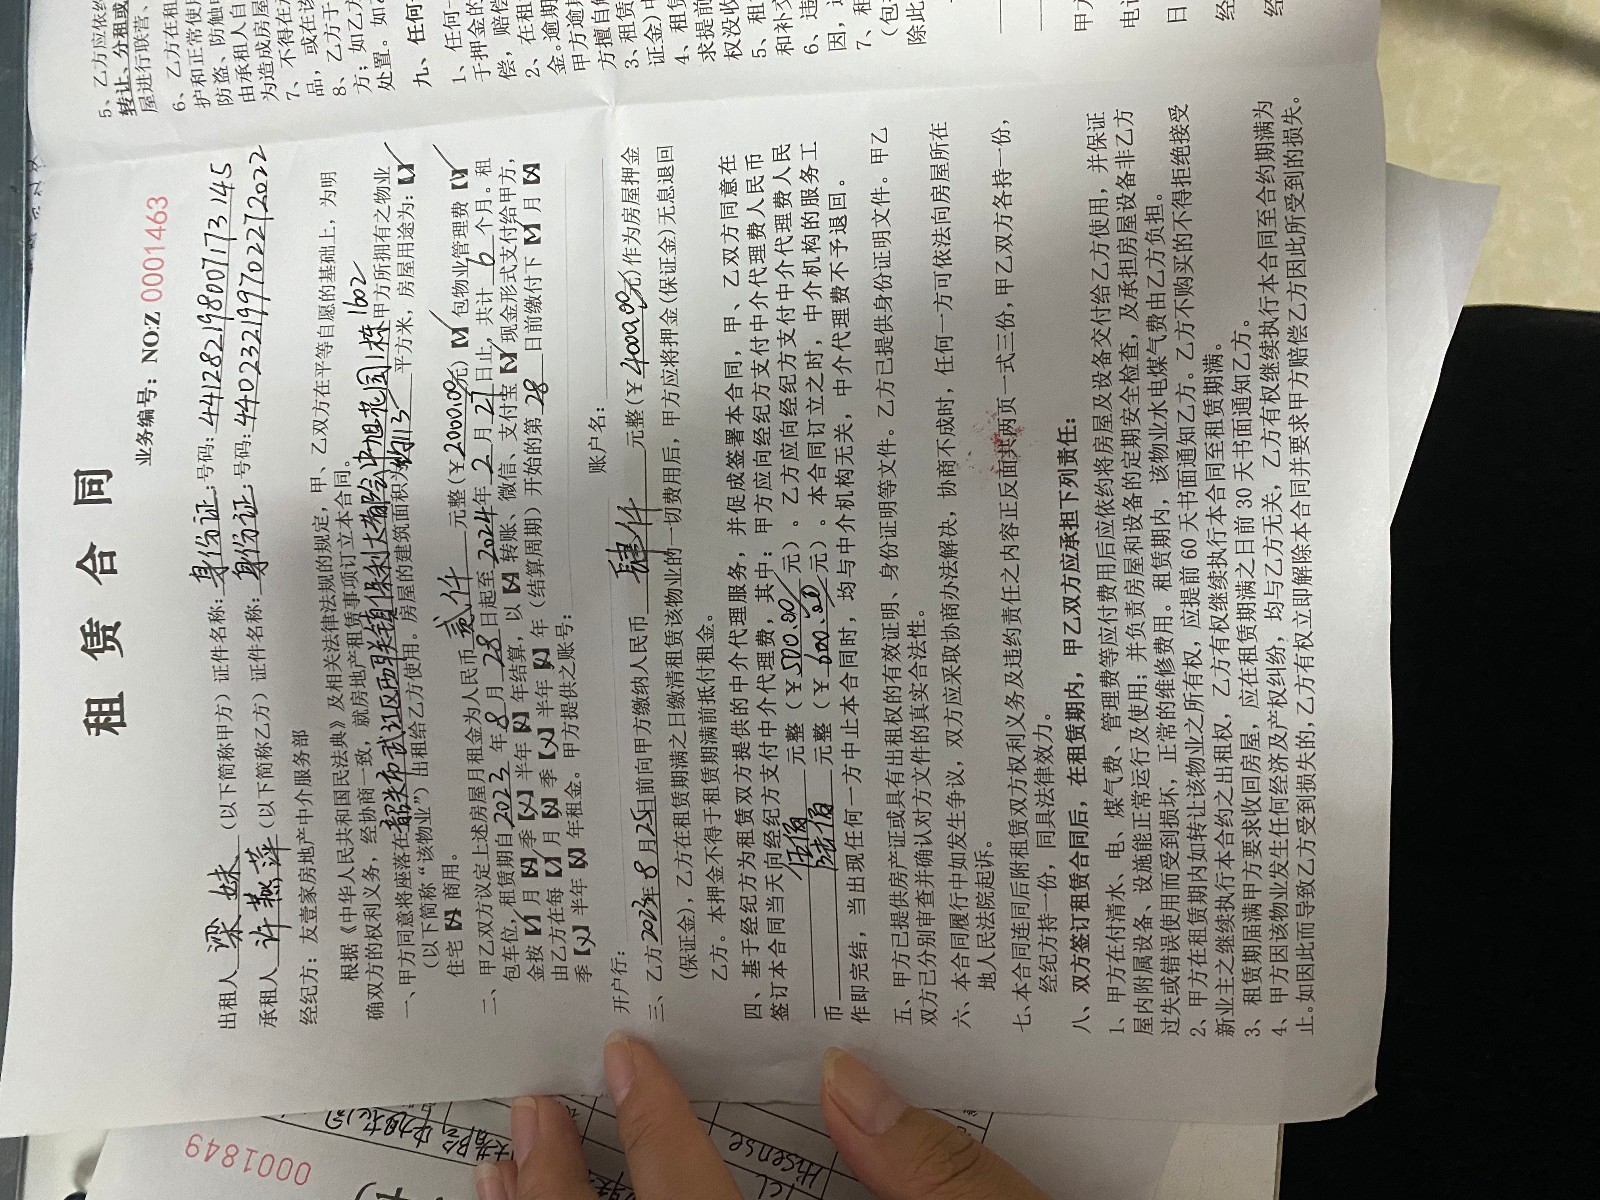 租 赁 合 同
业务编号：NO:Z 0001463
出租人 梁妹 (以下简称甲方）证件名称：身份证；号码：441282198007173145
承租人 许燕萍 (以下简称乙方）证件名称：身份证；号码：440232199702272022
经纪方：友壹家房地产中介服务部
根据《中华人民共和国民法典》及相关法律法规的规定，甲、乙双方在平等自愿的基础上，为明
确双方的权利义务，经协商一致，就房地产租赁事项订立本合同。
一、甲方同意将座落在韶关市武江区西联镇保利大都会中旭花园1栋1602甲方所拥有之物业
（以下简称“该物业”）出租给乙方使用。房屋的建筑面积为 约113 平方米，房屋用途为：【✓】
住宅【×】商用。
二、甲乙双方议定上述房屋月租金为人民币 贰仟 元整（￥2000.00元）【✓】包物业管理费【✓】
包车位，租赁期自 2023 年 8 月 28 日起至 2024年 2 月 27日止，共计 6 个月。租
金按【✓】月【×】季【×】半年【×】年结算，以【×】转账、微信、支付宝【✓】现金形式支付给甲方，
由乙方在每【✓】月【×】季【×】半年【×】年（结算周期）开始的第 28 日前缴付下【✓】月【×】
季【×】半年【×】年租金。甲方提供之账号：
开户行： 账户名：
三、乙方2023年8月25日前向甲方缴纳人民币 肆仟 元整（￥4000.00元）作为房屋押金
（保证金），乙方在租赁期满之日缴清租赁该物业的一切费用后，甲方应将押金（保证金）无息退回
乙方。本押金不得于租赁期满前抵付租金。
四、基于经纪方为租赁双方提供的中介代理服务，并促成签署本合同，甲、乙双方同意在
签订本合同当天向经纪方支付中介代理费，其中：甲方应向经纪方支付中介代理费人民币
伍佰 元整（￥500.00元）。乙方应向经纪方支付中介代理费人民
币 陆佰 元整（￥600.00元）。本合同订立之时，中介机构的服务工
作即完结，当出现任何一方中止本合同时，均与中介机构无关，中介代理费不予退回。
五、甲方已提供房产证或具有出租权的有效证明、身份证明等文件。乙方已提供身份证明文件。甲乙
双方已分别审查并确认对方文件的真实合法性。
六、本合同履行中如发生争议，双方应采取协商办法解决，协商不成时，任何一方可依法向房屋所在
地人民法院起诉。
七、本合同连同后附租赁双方权利义务及违约责任之内容正反面共两页一式三份，甲乙双方各持一份，
经纪方持一份，同具法律效力。
八、双方签订租赁合同后，在租赁期内，甲乙双方应承担下列责任：
1、甲方在付清水、电、煤气费、管理费等应付费用后应依约将房屋及设备交付给乙方使用，并保证
屋内附属设备、设施能正常运行及使用；并负责房屋和设备的定期安全检查，及承担房屋设备非乙方
过失或错误使用而受到损坏，正常的维修费用。租赁期内，该物业水电煤气费由乙方负担。
2、甲方在租赁期内如转让该物业之所有权，应提前 60 天书面通知乙方。乙方不购买的不得拒绝接受
新业主之继续执行本合约之出租权，乙方有权继续执行本合同至租赁期满。
3、租赁期届满甲方要求收回房屋，应在租赁期满之日前 30 天书面通知乙方。
4、甲方因该物业发生任何经济及产权纠纷，均与乙方无关，乙方有权继续执行本合同至合约期满为
止。如因此而导致乙方受到损失的，乙方有权立即解除本合同并要求甲方赔偿乙方因此所受到的损失。
5、乙方应依约
转让、分租或
屋进行联营、
6、乙方在租
护和正常使用
防盗、防触电
由承租人自
为造成房屋
7、不得在
品，或在该
8、乙方于
方；如乙方
处置。如
九、任何
1、任何一
于押金的
偿，赔偿
2、在租
金。逾期
甲方逾期
方擅自
3、租赁
证金)中
4、租赁
求提前
权没收
5、租
和补交
6、违
因，
7、租
（包
除此
甲方
电话
日
经
经
0001849
Hisense
TCL